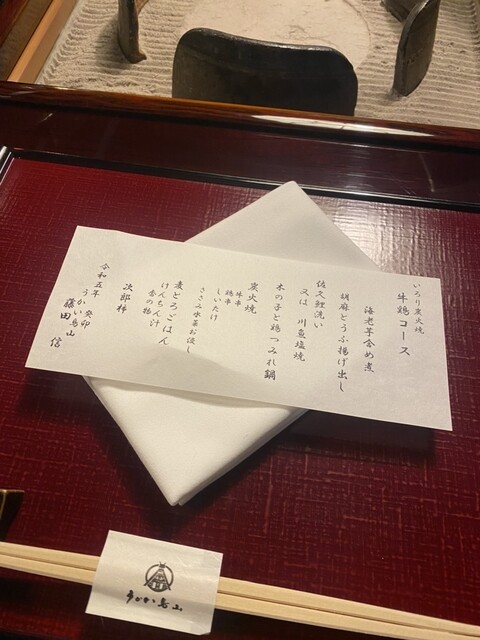 いろり炭火焼
牛鶏コース
海老芋含め煮
胡麻とうふ揚げ出し
佐久鯉洗い
又は 川魚塩焼
木の子と鶏つみれ鍋
炭火焼
牛串
鶏串
しいたけ
ささみ水菜お浸し
麦とろごはん
けんちん汁
香の物
次郎柿
令和五年 癸卯
うかい鳥山
藤田 信
うかい鳥山